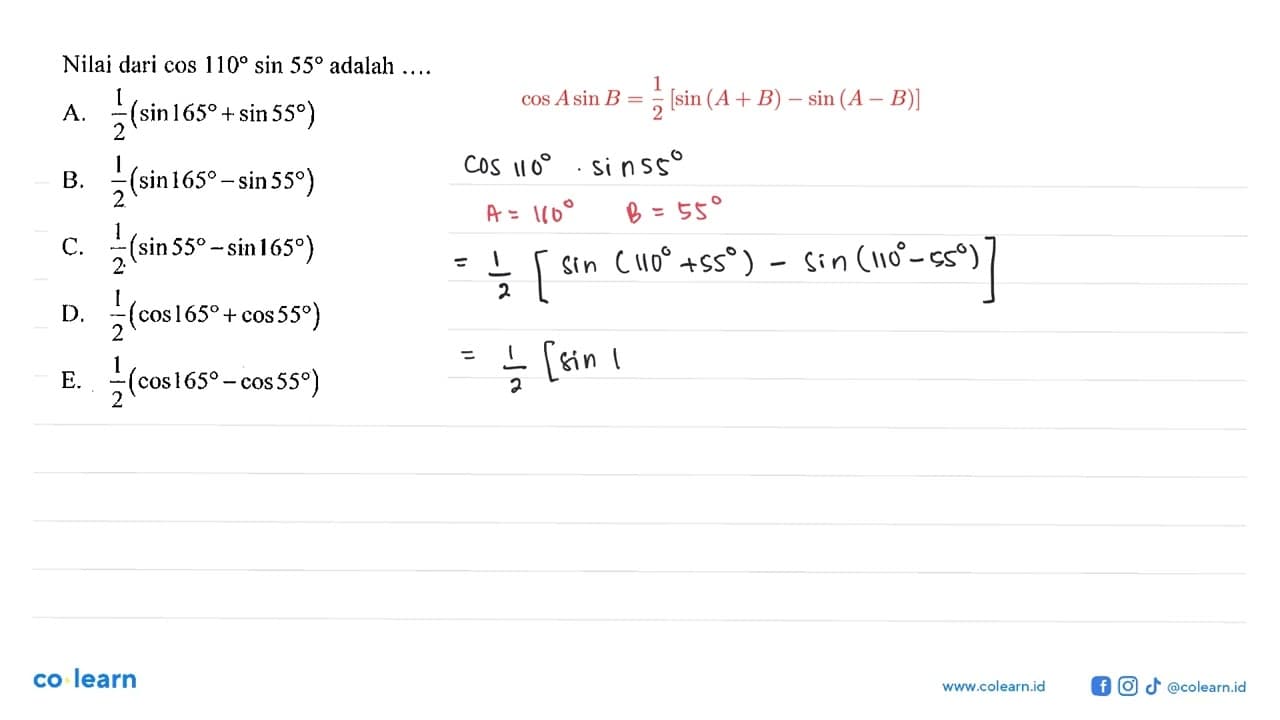 Nilai dari cos 110° sin 55° adalah ....
A. 1/2 (sin 165° + sin 55°)
B. 1/2 (sin 165° – sin 55°)
C. 1/2 (sin 55° – sin 165°)
D. 1/2 (cos 165° + cos 55°)
E. 1/2 (cos 165° – cos 55°)
cos A sin B = 1/2 [sin (A + B) – sin (A – B)]
cos 110° . sin 55°
A = 110° B = 55°
= 1/2 [sin (110° + 55°) – sin (110° – 55°)]
= 1/2 [sin 1
co learn
www.colearn.id
@colearn.id